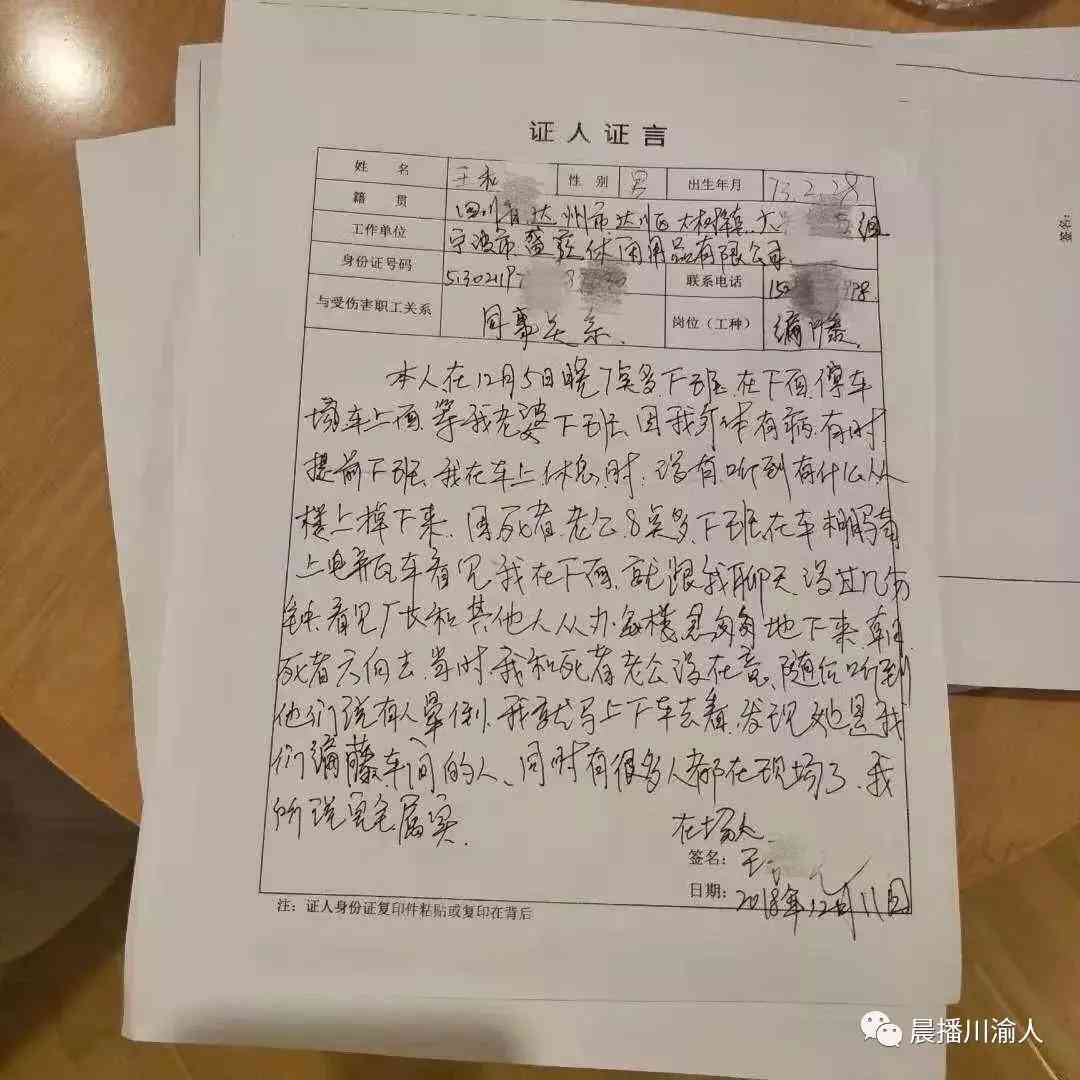 证人证言
姓 名 王 性 别 男 出生年月 73.2.28
籍 贯 四川省达州市达川区大树镇 组
工作单位 宁波市 休闲用品有限公司
身份证号码 513021197 联系电话 15 98
与受伤害职工关系 同事关系. 岗位（工种） 编藤.
本人在12月5日晚7点多下班.在下面停车
场车上面.等我老婆下班.因我身体有病.有时.
提前下班.我在车上休息时.没有听到有什么从
楼上掉下来.因死者老公8点多下班.在车棚骑
上电瓶车看见我在下面.就跟我聊天.没过几分
钟.看见厂长和其他人从办公楼急匆匆地下来.
死者方向去.当时我和死者老公没在意.随后听到
他们说有人晕倒.我就马上下车去看.发现她是我
们编藤车间的人、同时有很多人都在现场了.我
所说完全属实.
在场人
签名：王
日期：2018年12月11日
注：证人身份证复印件粘贴或复印在背后
签名:
晨播川渝人